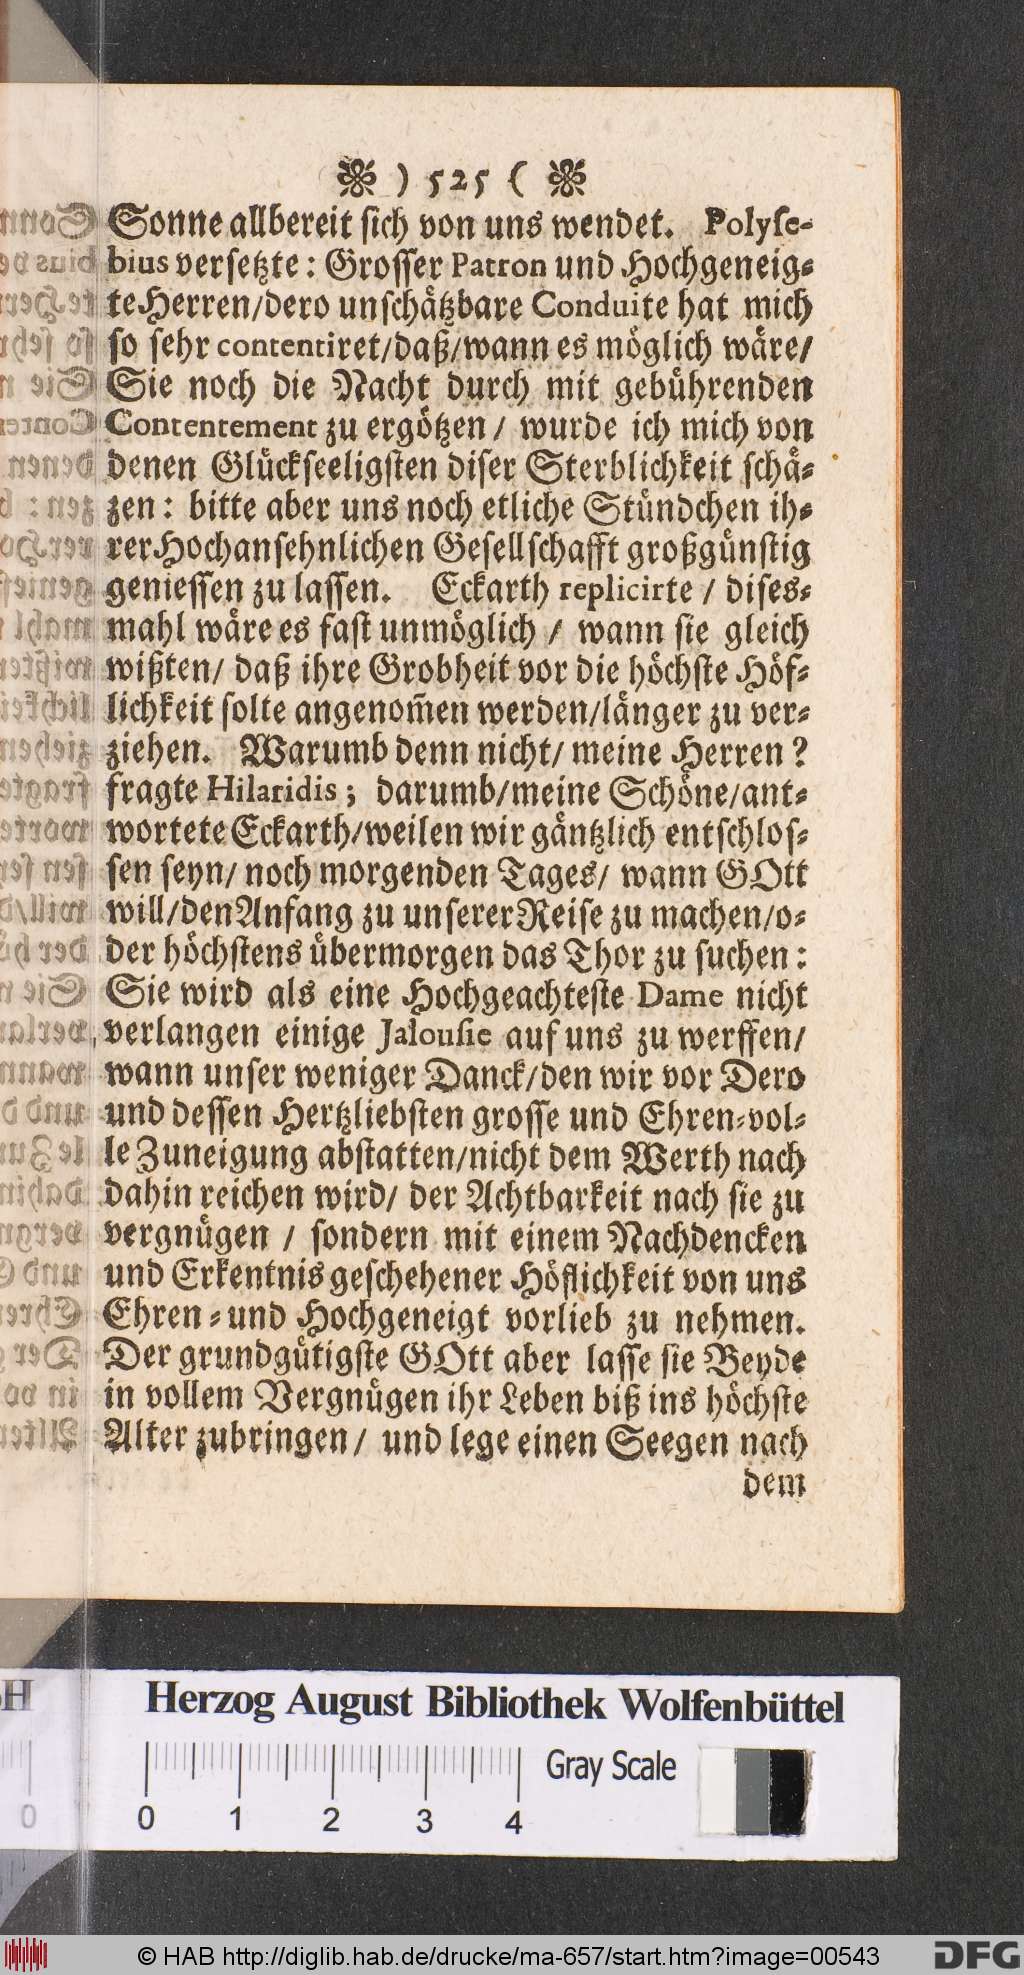 ❀ ) 525 ( ❀
Sonne allbereit sich von uns wendet. Polyse-
bius versetzte: Grosser Patron und Hochgeneig-
te Herren/dero unschätzbare Conduite hat mich
so sehr contentiret/daß/wann es möglich wäre/
Sie noch die Nacht durch mit gebührenden
Contentement zu ergötzen/ wurde ich mich von
denen Glückseeligsten diser Sterblichkeit schä-
zen: bitte aber uns noch etliche Stündchen ih-
rer Hochansehnlichen Gesellschafft großgünstig
geniessen zu lassen. Eckarth replicirte / dises-
mahl wäre es fast unmöglich / wann sie gleich
wißten/ daß ihre Grobheit vor die höchste Höf-
lichkeit solte angenom̃en werden/länger zu ver-
ziehen. Warumb denn nicht/ meine Herren?
fragte Hilaridis; darumb/meine Schöne/ant-
wortete Eckarth/weilen wir gäntzlich entschlos-
sen seyn/ noch morgenden Tages/ wann GOtt
will/den Anfang zu unserer Reise zu machen/o-
der höchstens übermorgen das Thor zu suchen:
Sie wird als eine Hochgeachteste Dame nicht
verlangen einige Jalousie auf uns zu werffen/
wann unser weniger Danck/den wir vor Dero
und dessen Hertzliebsten grosse und Ehren-vol-
le Zuneigung abstatten/nicht dem Werth nach
dahin reichen wird/ der Achtbarkeit nach sie zu
vergnügen / sondern mit einem Nachdencken
und Erkentnis geschehener Höflichkeit von uns
Ehren- und Hochgeneigt vorlieb zu nehmen.
Der grundgütigste GOtt aber lasse sie Beyde
in vollem Vergnügen ihr Leben biß ins höchste
Alter zubringen/ und lege einen Seegen nach
dem
Herzog August Bibliothek Wolfenbüttel
Gray Scale
0 1 2 3 4
© HAB http://diglib.hab.de/drucke/ma-657/start.htm?image=00543
DFG